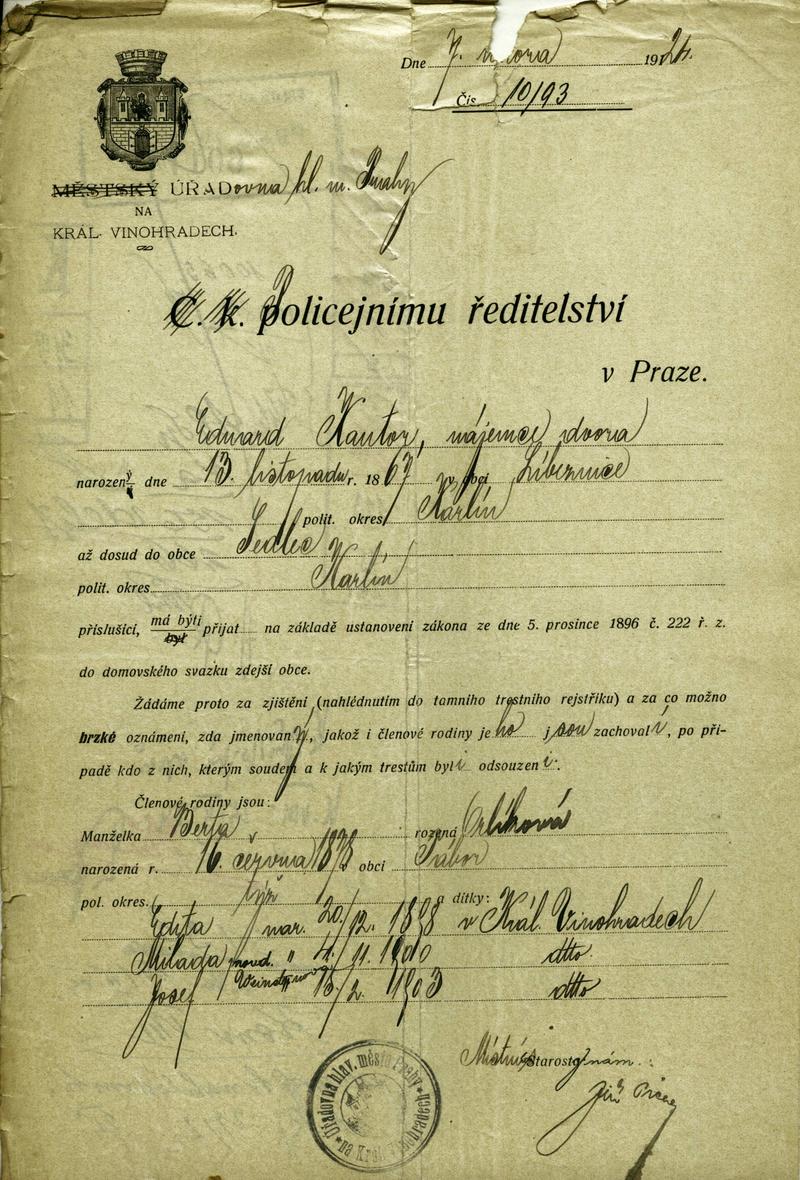 Dne 7. února 1924.
Čís. 10/93
MĚSTSKÝ ÚŘADovna hl. m. Prahy
NA
KRÁL. VINOHRADECH.
C. k. Policejnímu ředitelství
v Praze.
Eduard Kantor, nájemce dvora
narozený dne 13. listopadu r. 1867 v obci Líbeznice
polit. okres Karlín
až dosud do obce Sedlec
polit. okres Karlín
příslušící, má býti byl přijat na základě ustanovení zákona ze dne 5. prosince 1896 č. 222 ř. z.
do domovského svazku zdejší obce.
Žádáme proto za zjištění (nahlédnutím do tamního trestního rejstříku) a za co možno
brzké oznámení, zda jmenovaný, jakož i členové rodiny jeho jsou zachovalí, po pří-
padě kdo z nich, kterým soudem a k jakým trestům byli odsouzeni.
Členové rodiny jsou:
Manželka Berta rozená Orlíková
narozená r. 16. června 1878 v obci Tábor
pol. okres. týž a dítky:
Edita nar. 20/12. 1898 v Král. Vinohradech
Milada provd. " 4/11. 1900 dtto
Josef 15/2. 1903 dtto
Místostarosta nám.:
Úřadovna hlav. města Prahy
na Král. Vinohradech